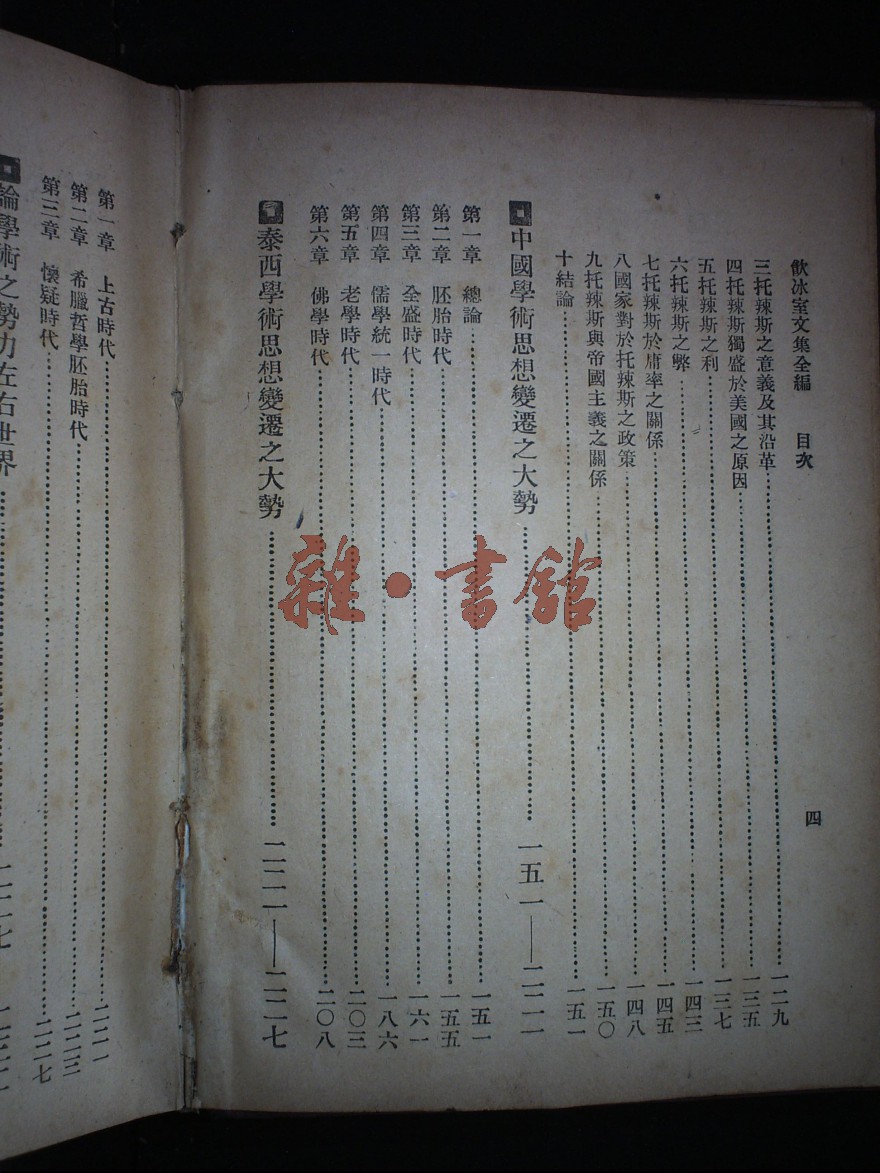 飲冰室文集全編 目次 四
三托辣斯之意義及其沿革 一二九
四托辣斯獨盛於美國之原因 一三五
五托辣斯之利 一三七
六托辣斯之弊 一四三
七托辣斯於庸率之關係 一四五
八國家對於托辣斯之政策 一四八
九托辣斯與帝國主義之關係 一五〇
十結論 一五一
中國學術思想變遷之大勢 一五一——二二一
第一章 總論 一五一
第二章 胚胎時代 一五五
第三章 全盛時代 一六一
第四章 儒學統一時代 一八六
第五章 老學時代 二〇三
第六章 佛學時代 二〇八
泰西學術思想變遷之大勢 二二一——二二七
第一章 上古時代 二二一
第二章 希臘哲學胚胎時代 二二三
第三章 懷疑時代 二二七
論學術之勢力左右世界
雜·書舘